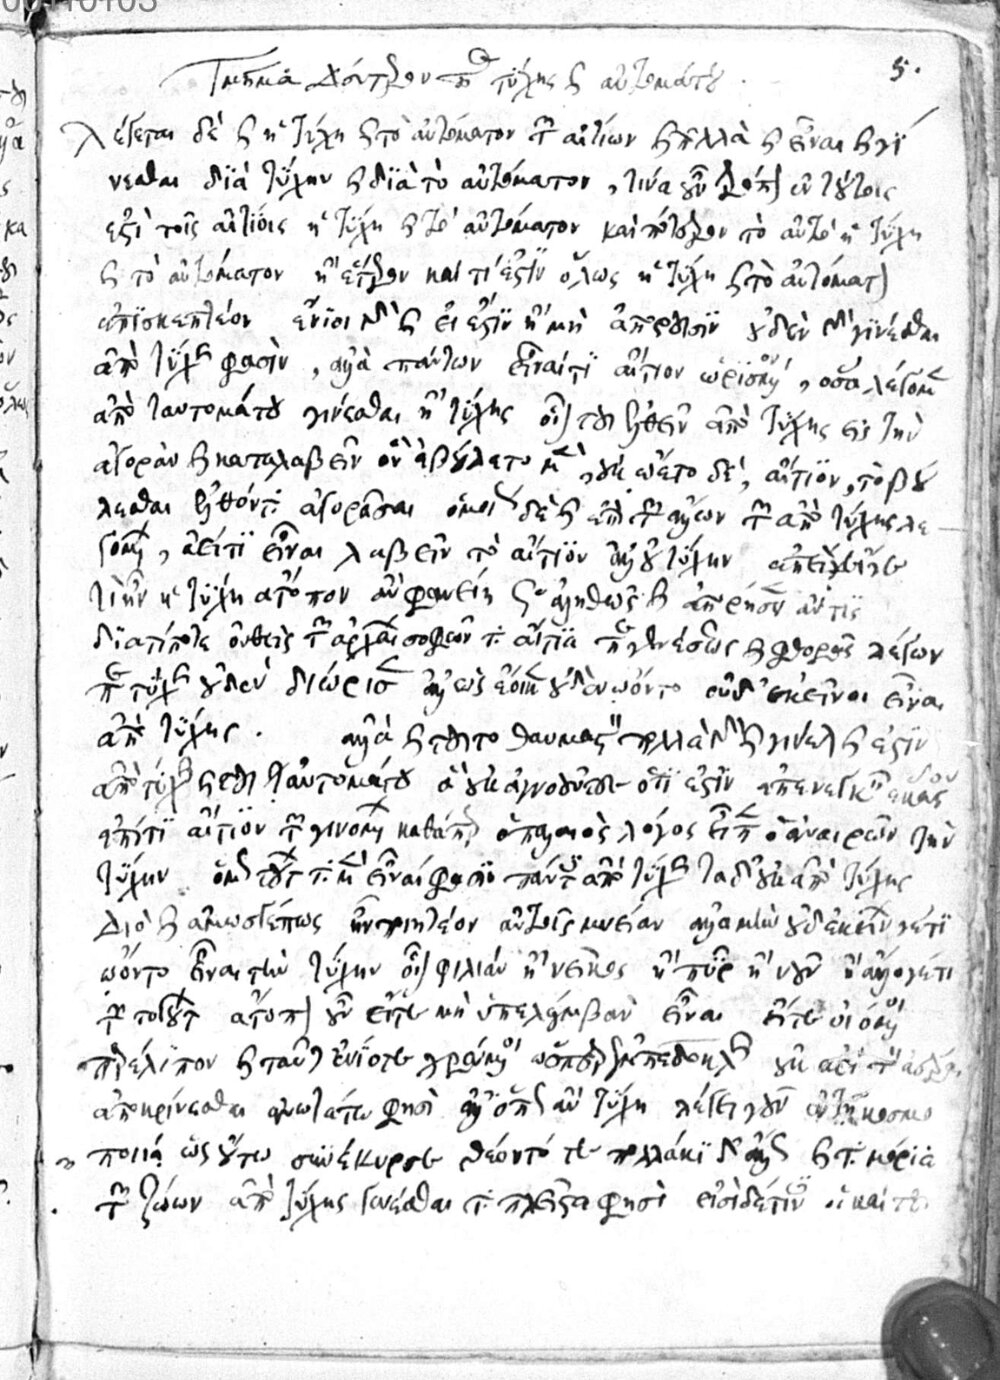 Τμῆμα δεύτερον περὶ τύχης καὶ αὐτομάτου . 5.
λέγεται δὲ καὶ ἡ τύχη καὶ τὸ αὐτόματον τῶν αἰτίων καὶ πολλὰ καὶ εἶναι καὶ γί
νεσθαι διὰ τύχην καὶ διὰ τὸ αὐτόματον, τίνα οὖν τρόπον ἐν τούτοις
ἐστὶ τοῖς αἰτίοις ἡ τύχη καὶ τὸ αὐτόματον καὶ πότερον τὸ αὐτὸ ἡ τύχη
καὶ τὸ αὐτόματον ἢ ἕτερον καὶ τί ἐστὶν ὅλως ἡ τύχη καὶ τὸ αὐτόματον
ἐπισκεπτέον ἔνιοι γὰρ καὶ εἰ ἐστὶν ἢ μὴ ἀποροῦσιν οὐδὲν γὰρ γίνεσθαι
ἀπὸ τύχης φασὶν, ἀλλὰ πάντων εἶναί τι αἴτιον ὡρισμένον, ὅσα λέγομεν
ἀπὸ ταυτομάτου γίνεσθαι ἢ τύχης οἷον τοῦ ἐλθεῖν ἀπὸ τύχης εἰς τὴν
ἀγορὰν καὶ καταλαβεῖν ὃν ἐβούλετο μὲν, οὐκ ᾤετο δὲ, αἴτιον, τὸ βού
λεσθαι ἐλθόντα ἀγοράσαι ὁμοίως δὲ καὶ ἐπὶ τῶν ἄλλων τῶν ἀπὸ τύχης λε
γομένων, ἀεί τι εἶναι λαβεῖν τὸ αἴτιον ἀλλ' οὐ τύχην ἐπεὶ εἴγε
τὶ ἦν ἡ τύχη ἄτοπον ἂν φανείη ὡς ἀληθῶς καὶ ἀπορήσειεν ἄν τις
διατί ποτ' οὐθεὶς τῶν ἀρχαίων σοφῶν τὰ αἴτια περὶ γενέσεως καὶ φθορᾶς λέγων
περὶ τύχης οὐδὲν διώρισεν ἀλλ' ὡς ἔοικεν οὐδὲν ᾤοντο οὐδ' ἐκεῖνοι εἶναι
ἀπὸ τύχης . ἀλλὰ καὶ τοῦτο θαυμαστόν πολλὰ γὰρ καὶ γίνεται καὶ ἐστὶν
ἀπὸ τύχης καὶ ἀπὸ ταὐτομάτου ἃ οὐκ ἀγνοοῦντες ὅτι ἐστὶν ἐπενεγκεῖν ἕκαστον
ἐπί τι αἴτιον τῶν γινομένων καθάπερ ὁ παλαιὸς λόγος εἶπεν ὁ ἀναιρῶν τὴν
τύχην ὅμως τούτων τὰ μὲν εἶναί φασιν πάντες ἀπὸ τύχης τὰ δ' οὐκ ἀπὸ τύχης
Διὸ καὶ ἁμωσγέπως ἦν ποιητέον αὐτοῖς μνείαν ἀλλὰ μὴν οὐδ' ἐκείνων γέ τι
ᾤοντο εἶναι τὴν τύχην οἷον φιλίαν ἢ νεῖκος ἢ πῦρ ἢ νοῦν ἢ ἄλλο γέ τι
τῶν τοιούτων ἄτοπον οὖν εἴτε μὴ ὑπελάμβανον εἶναι εἴτε οἰόμενοι
παρέλιπον καὶ ταῦτ' ἐνίοτε χρώμενοι ὥσπερ Ἐμπεδοκλῆς οὐκ ἀεὶ τὸν ἀέρα
ἀποκρίνεσθαι ἀνωτάτω φησὶ ἀλλ' ὅπως ἂν τύχῃ λέγει γοῦν ἐν τῇ κοσμο
ποιίᾳ ὡς οὕτω συνέκυρσε θέων τότε πολλάκι δ' ἄλλως καὶ τὰ μόρια
τῶν ζώων ἀπὸ τύχης γενέσθαι τὰ πλεῖστα φησὶ εἰσὶ δέ τινες οἳ καὶ